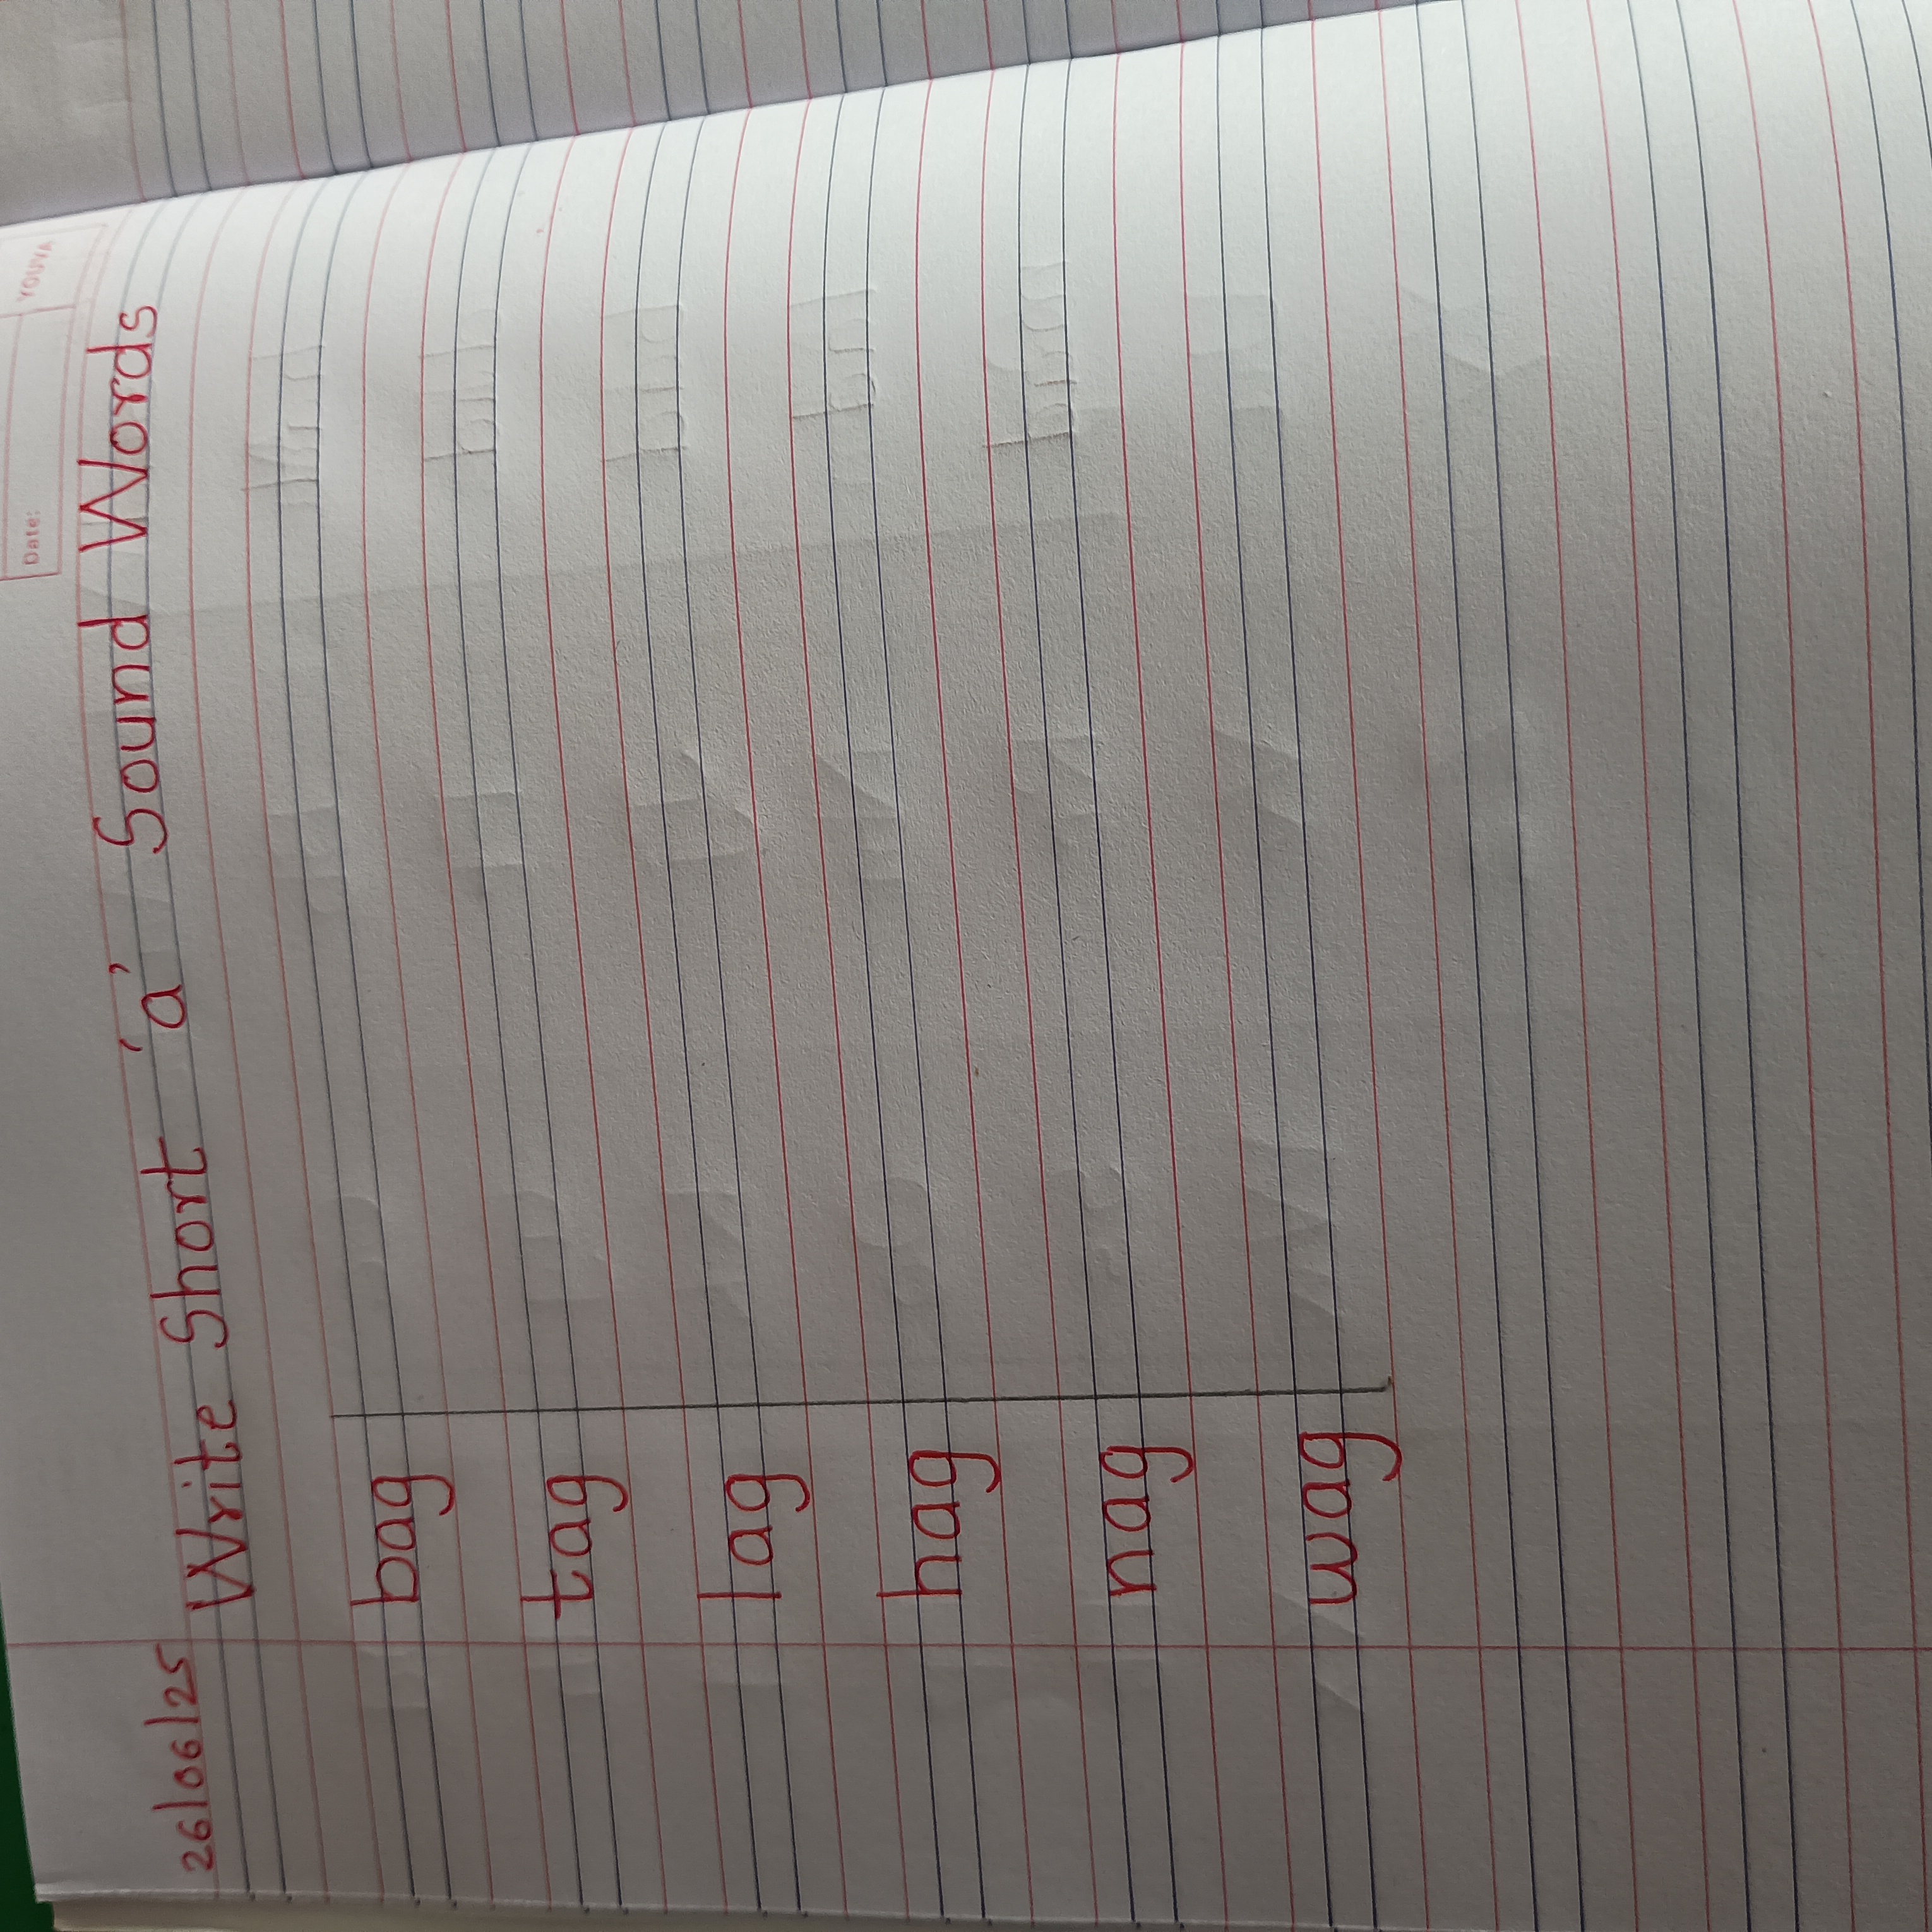 YOUVA
Date:
26/06/25 Write Short 'a' Sound Words
bag
tag
lag
hag
nag
wag